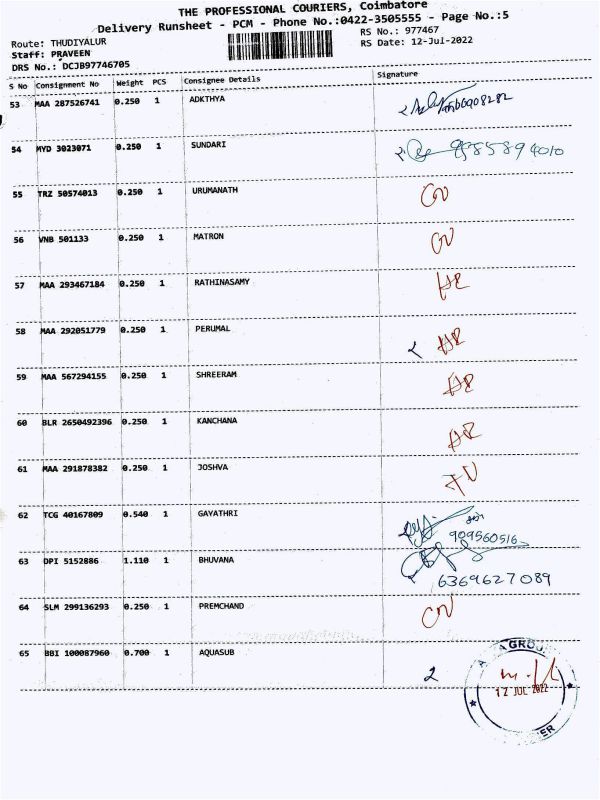 THE PROFESSIONAL COURIERS, Coimbatore
Delivery Runsheet - PCM - Phone No.:0422-3505555 - Page No.:5
Route: THUDIYALUR
RS No.: 977467
Staff: PRAVEEN
RS Date: 12-Jul-2022
DRS No.: DCJB97746705
S No Consignment No Weight PCS Consignee Details Signature
53 MAA 287526741 0.250 1 ADKTHYA
54 MYD 3023071 0.250 1 SUNDARI 9985894010
55 TRZ 50574013 0.250 1 URUMANATH
56 VNB 501133 0.250 1 MATRON
57 MAA 293467184 0.250 1 RATHINASAMY
58 MAA 292051779 0.250 1 PERUMAL
59 MAA 567294155 0.250 1 SHREERAM
60 BLR 2650492396 0.250 1 KANCHANA
61 MAA 291878382 0.250 1 JOSHVA
62 TCG 40167809 0.540 1 GAYATHRI 909560516
63 DPI 5152886 1.110 1 BHUVANA 6369627089
64 SLM 299136293 0.250 1 PREMCHAND
65 BBI 100087960 0.700 1 AQUASUB 2
12 JUL 2022